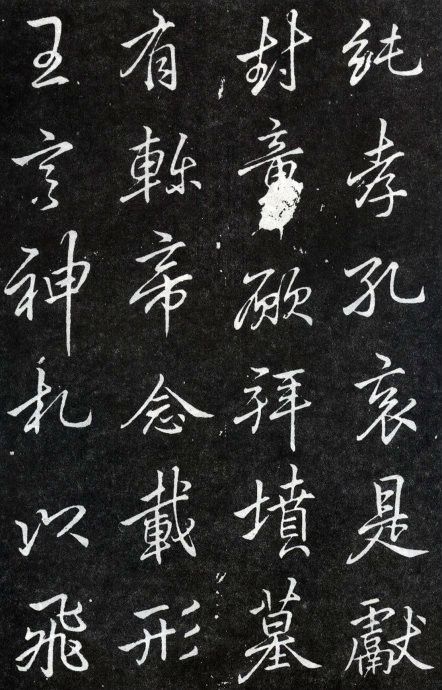 純孝孔哀是獻
封章願拜墳墓
有軫帝念載形
王言神札以飛